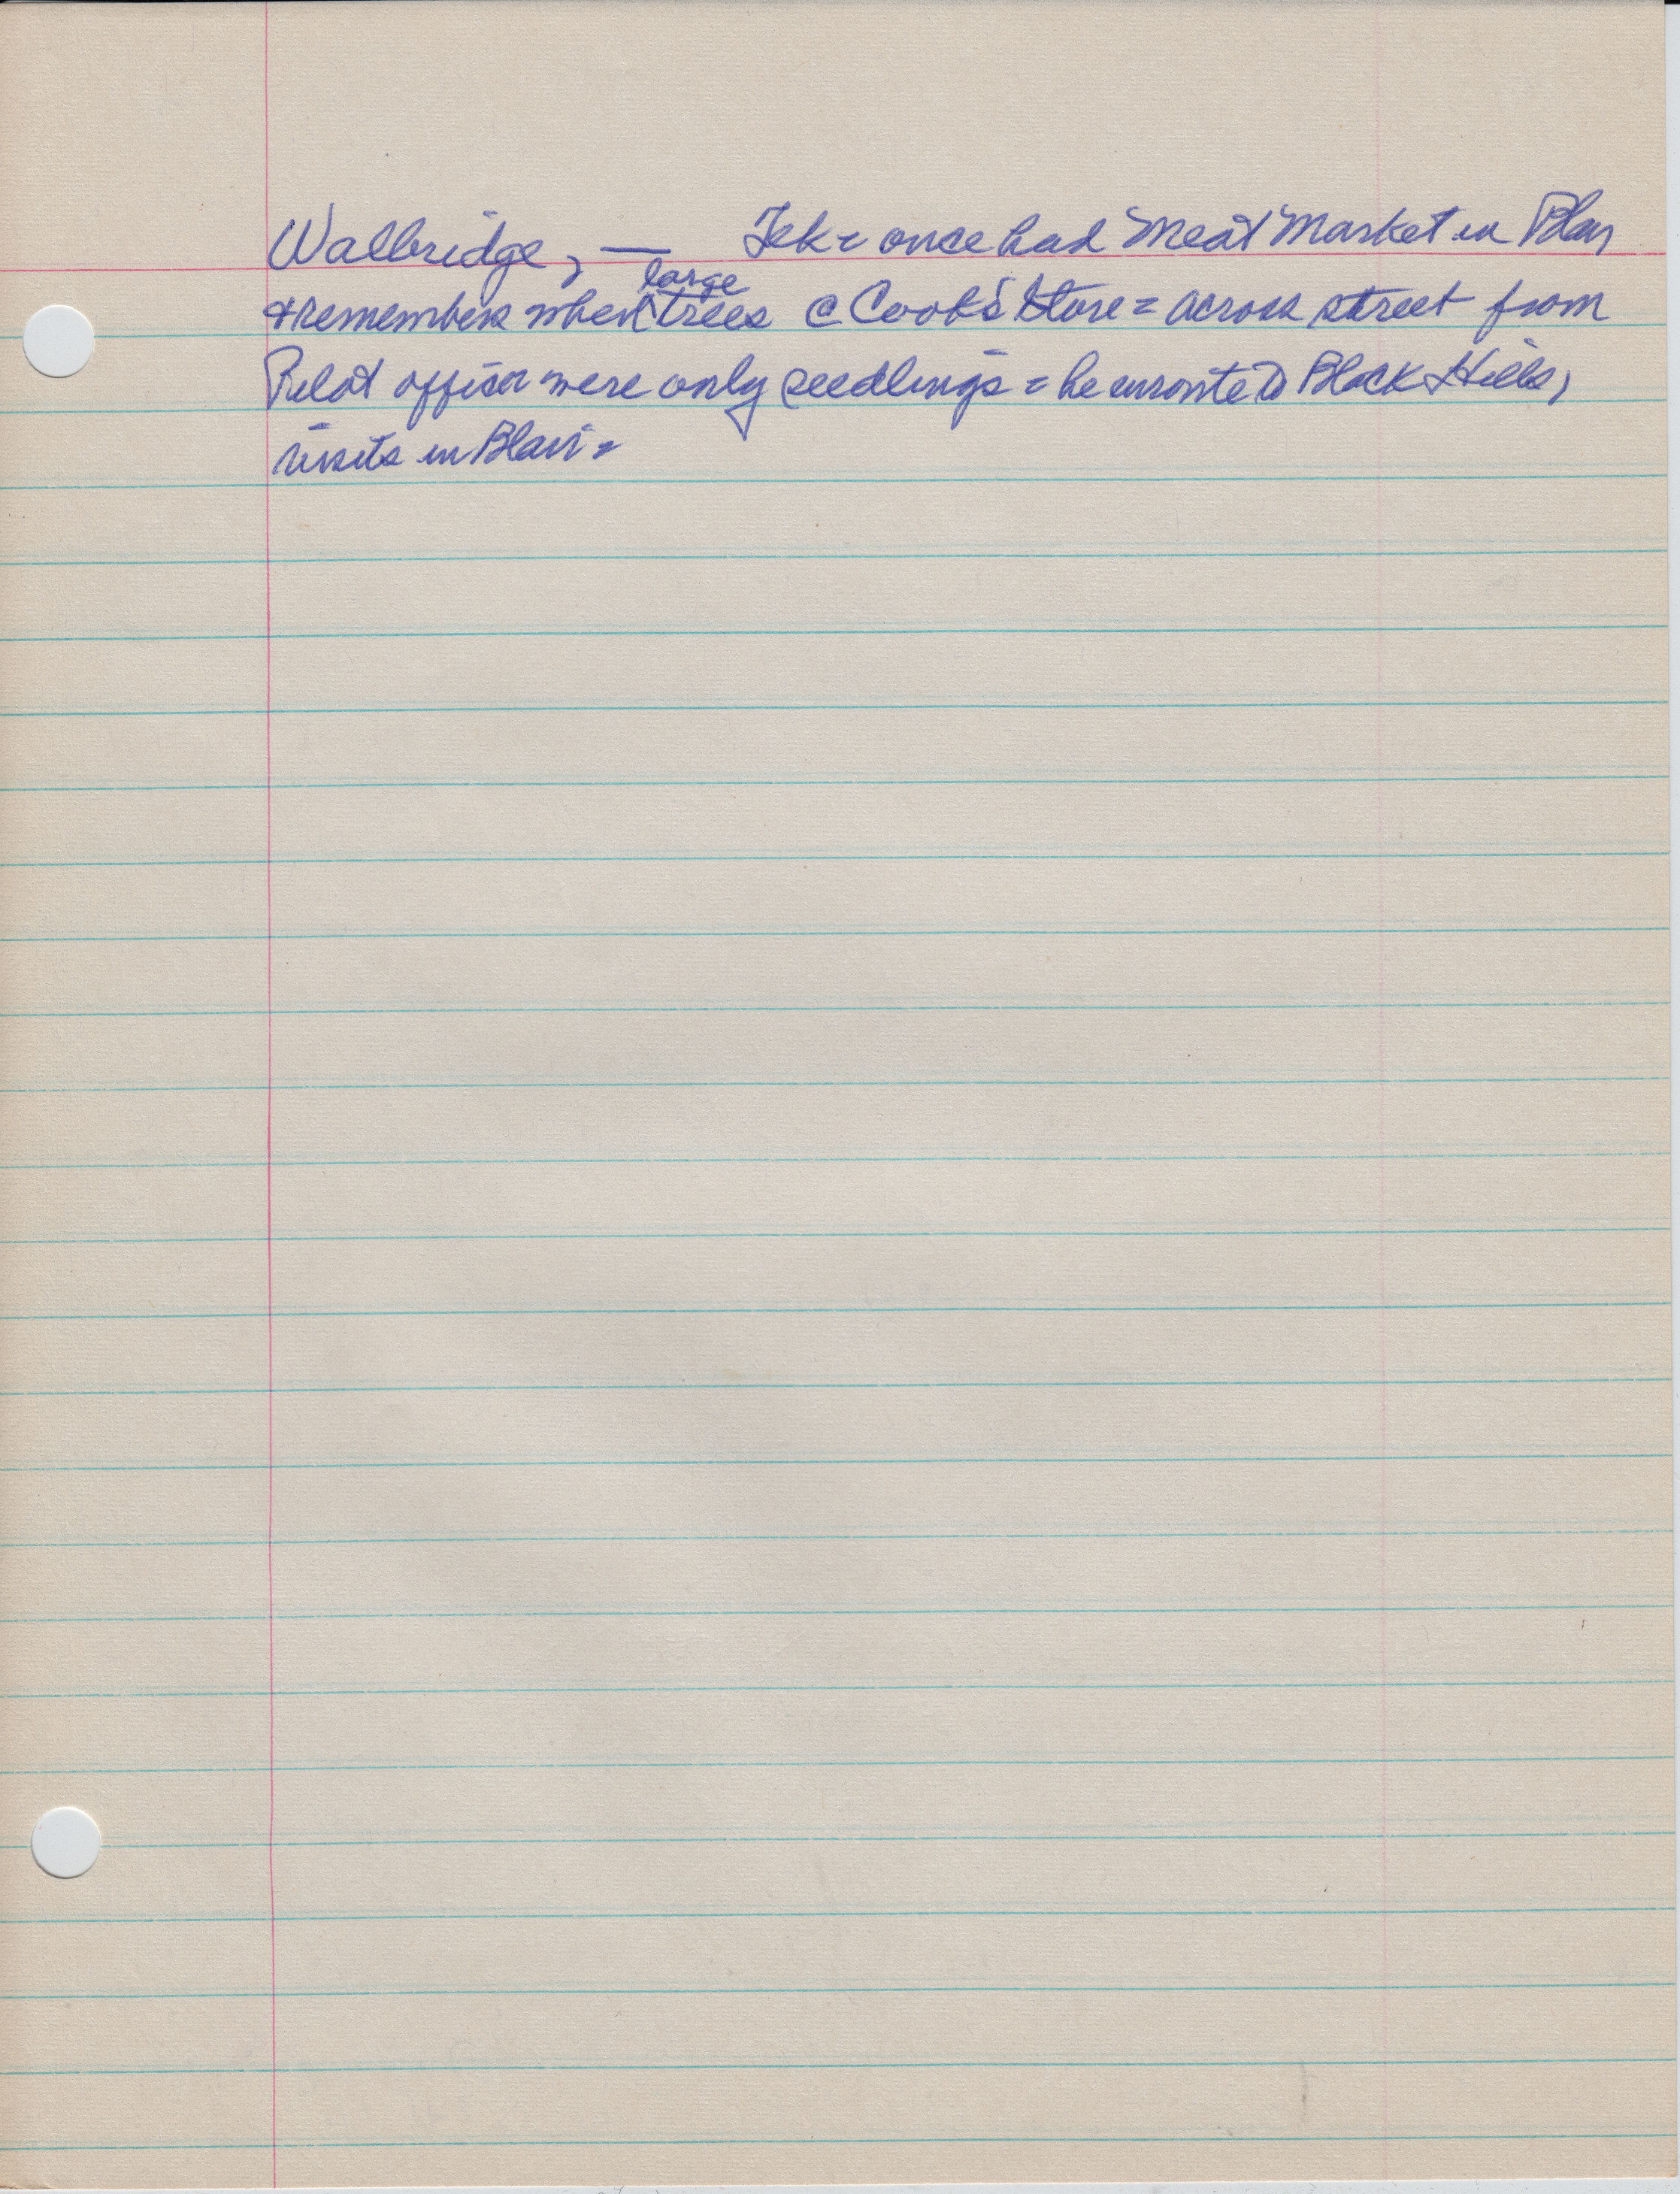 Walbridge, — Tek = once had "Meat Market in Blair
& remembers when large trees @ Cook's Store = across street from
Pilot office were only seedlings = he enroute to Black Hills,
visits in Blair =